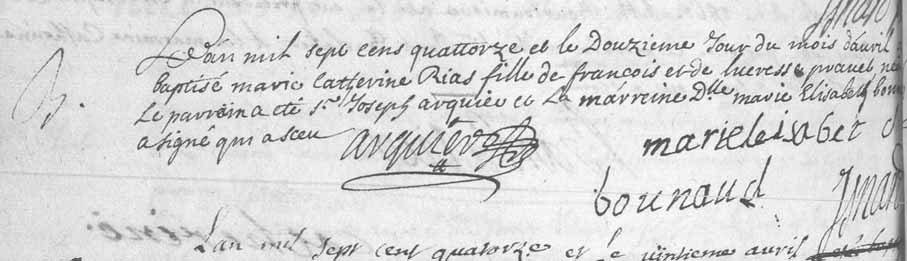 B.
L'an mil sept cens quattorze et le Douzieme Jour du mois davril
baptisé marie Catterine Rias fille de francois et de lucresse pravel
Le parrein a eté Sr. Joseph arquier et La marreine Dlle marie Elisabeth
a signé qui a sceu
arquier
marieleisabet
bounaud
L'an mil sept cent quatorze et le vintieme avril